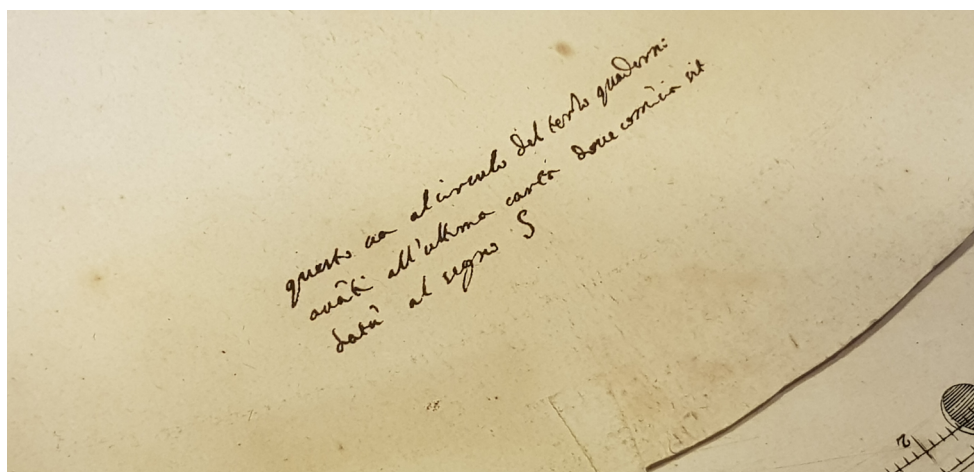 questo va al circulo del terzo quadern:
avāti all'ultima carta dove comīcia sit
datū al segno S
2